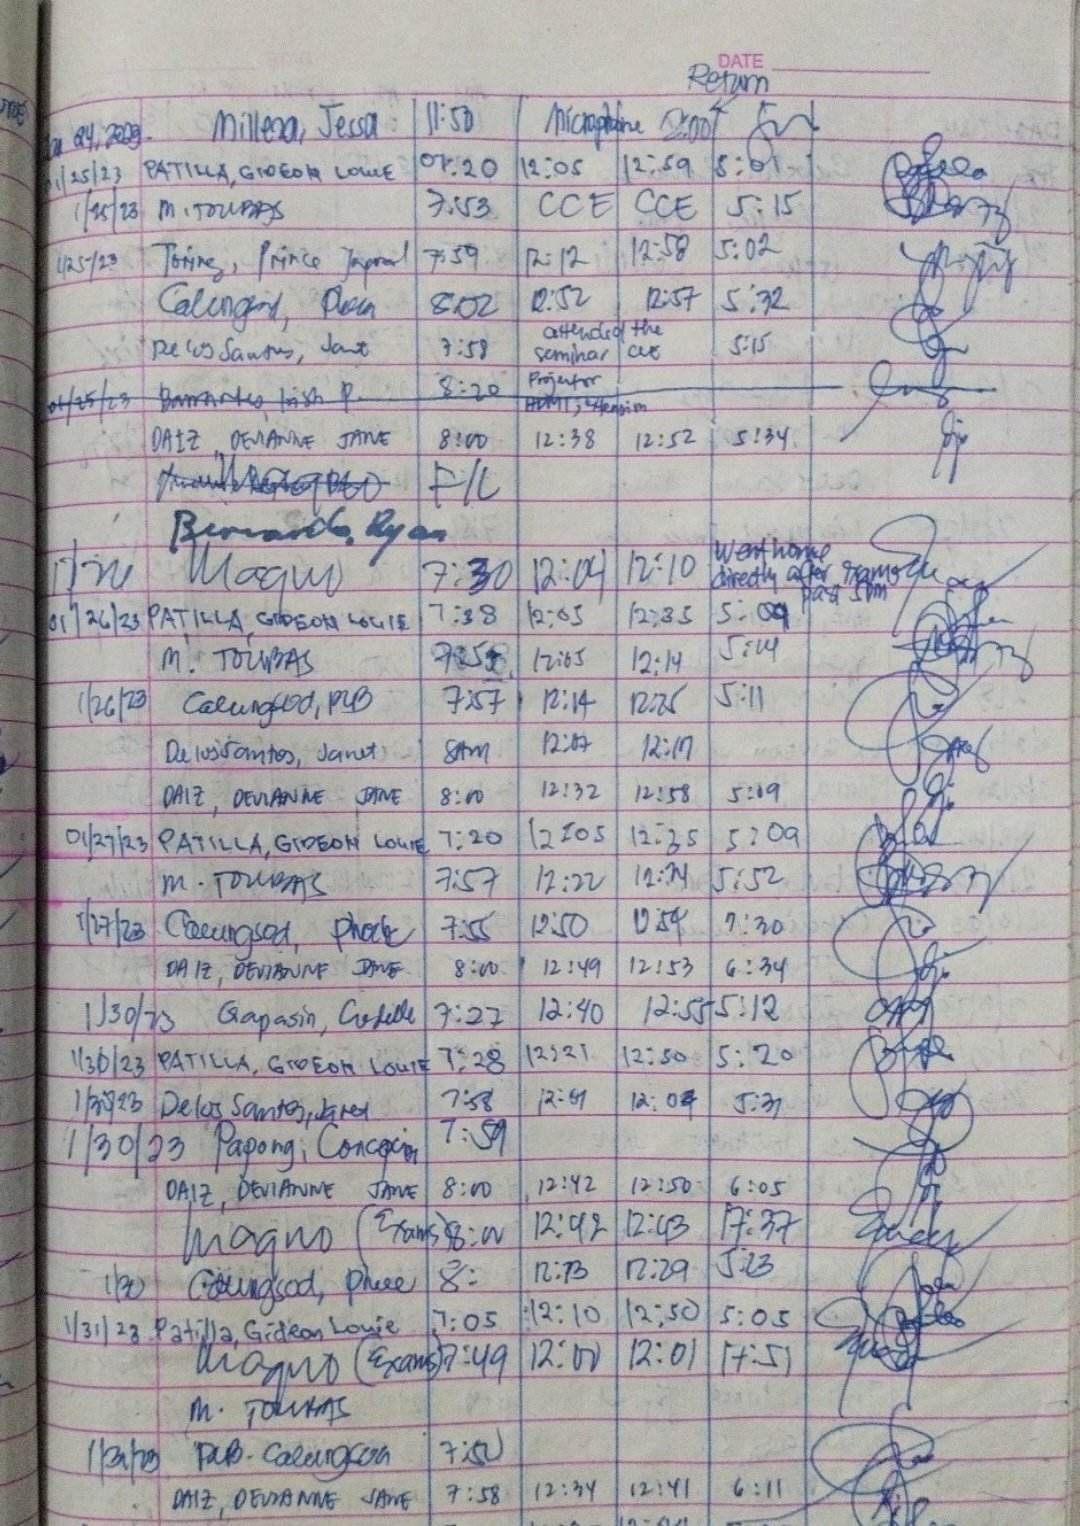 DATE
Return
Jan 24, 2023 Millena, Jessa 11:50 Microphone 2:00
01/25/23 PATILLA, GIDEON LOUIE 07:20 12:05 12:59 5:01
1/25/23 M. TOUBAS 7:53 CCE CCE 5:15
1/25/23 Toring, Prince 7:59 12:12 12:58 5:02
Calungsod, 8:02 12:52 12:57 5:32
De los Santos, Janet 7:58 attended the seminar CCE 5:15
01/25/23 Irish P. 8:20 Projector
HDMI, extension
DAIZ, DEVIANNE JANE 8:00 12:38 12:52 5:34
F/L
Bernardo, Ryan
1/26 Magno 7:30 12:04 12:10 Went home directly after past 5pm
01/26/23 PATILLA, GIDEON LOUIE 7:38 12:05 12:35 5:09
M. TOUBAS 12:05 12:14 5:14
1/26/23 Calungsod, PLB 7:57 12:14 12:25 5:11
De los Santos, Janet 8AM 12:07 12:17
DAIZ, DEVIANNE JANE 8:00 12:32 12:58 5:09
01/27/23 PATILLA, GIDEON LOUIE 7:20 12:05 12:35 5:09
M. TOUBAS 7:57 12:22 12:24 5:52
1/27/23 Calungsod, Phoebe 7:55 12:50 12:54 7:30
DAIZ, DEVIANNE JANE 8:00 12:49 12:53 6:34
1/30/23 Gapasin, 7:27 12:40 12:55 5:12
1/30/23 PATILLA, GIDEON LOUIE 7:28 12:21 12:50 5:20
1/30/23 De los Santos, Janet 7:58 12:01 12:04 5:31
1/30/23 Papong, Concepcion 7:59
DAIZ, DEVIANNE JANE 8:00 12:42 12:50 6:05
Magno (Exams) 8:00 12:42 12:43 17:37
1/30 Calungsod, Phoebe 8: 12:13 12:29 5:23
1/31/23 Patilla, Gideon Louie 7:05 12:10 12:50 5:05
Magno (Exams) 7:49 12:00 12:01 17:51
M. TOUBAS
1/31/23 PLB. Calungsod 7:50
DAIZ, DEVIANNE JANE 7:58 12:34 12:41 6:11